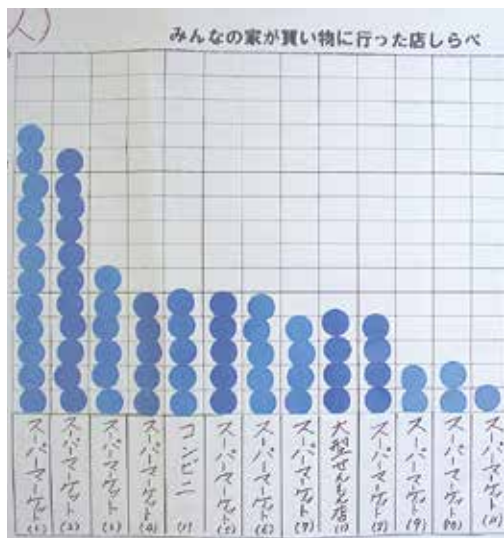 人)
みんなの家が買い物に行った店しらべ
スーパーマーケット(1)
スーパーマーケット(2)
スーパーマーケット(3)
スーパーマーケット(4)
コンビニ(1)
スーパーマーケット(5)
スーパーマーケット(6)
スーパーマーケット(7)
大型せんもん店(1)
スーパーマーケット(8)
スーパーマーケット(9)
スーパーマーケット(10)
スーパーマーケット(11)